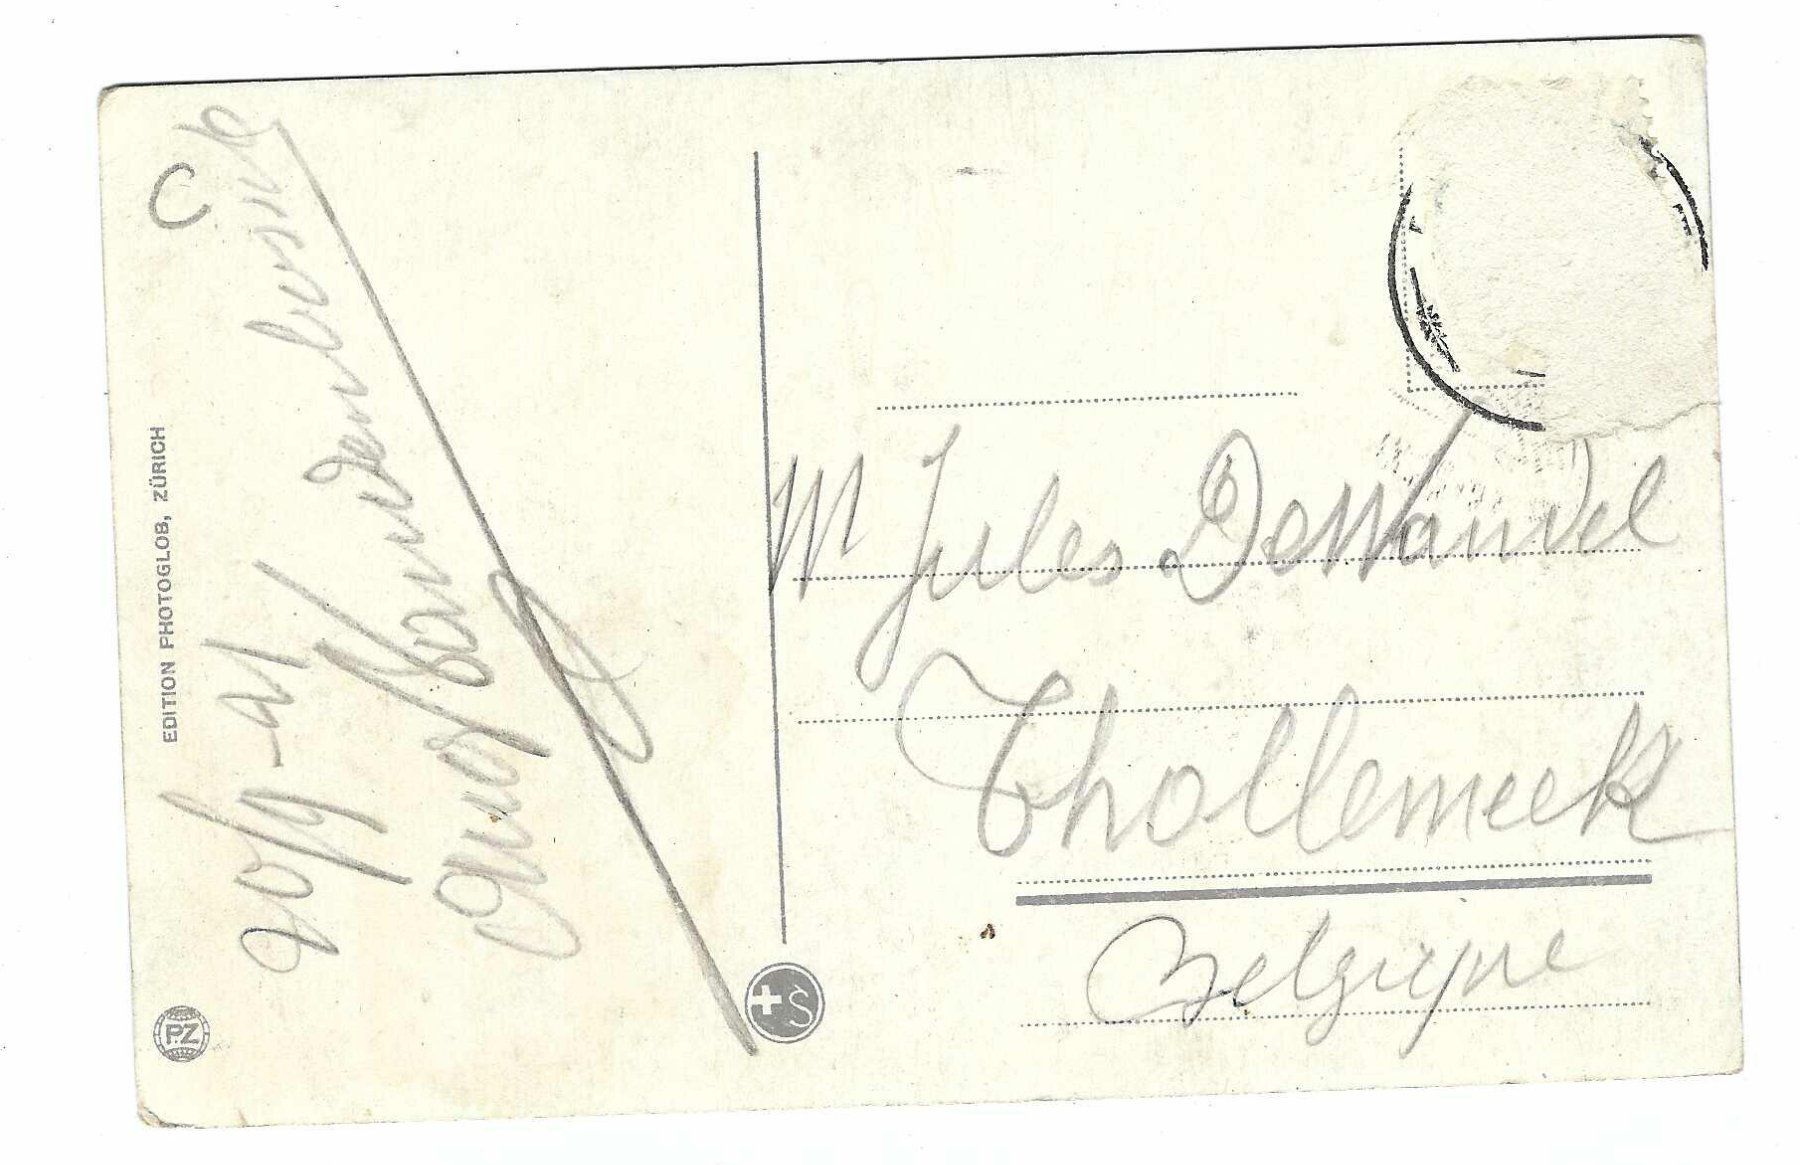 C
EDITION PHOTOGLOB, ZÜRICH
PZ
20/9-21
Vandenbossche
+S
M Jules DeWandel
Thollembeek
Belgique